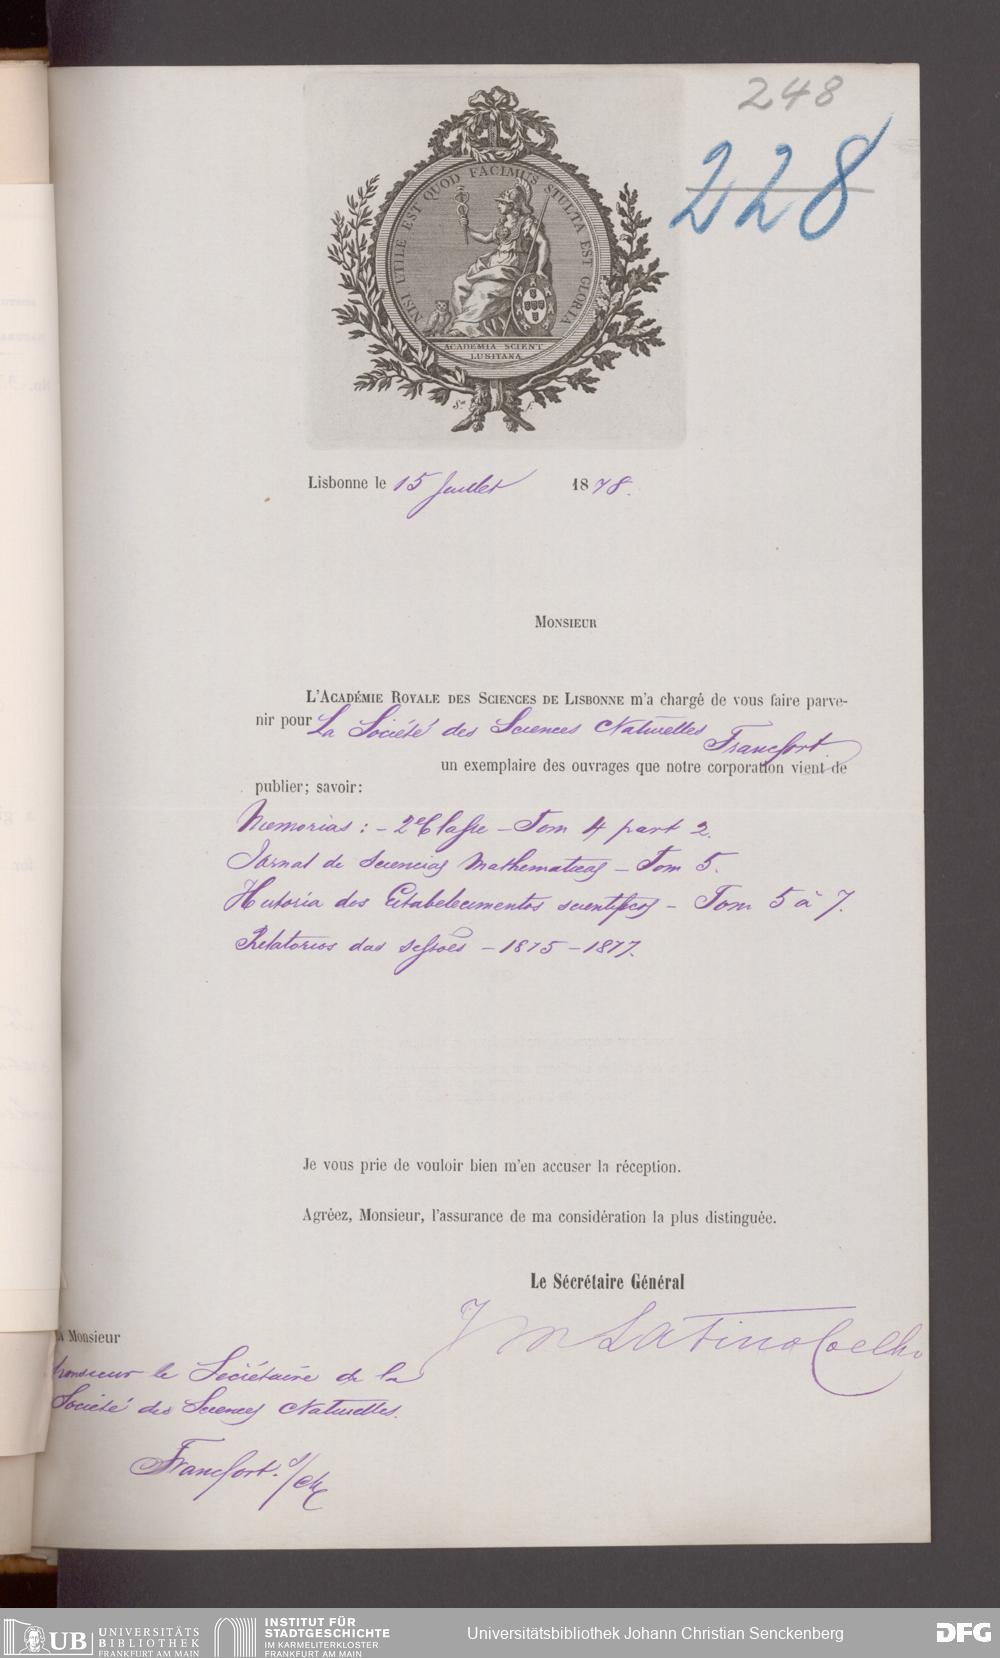 248
228
NISI UTILE EST QUOD FACIMUS STULTA EST GLORIA
ACADEMIA SCIENT
LUSITANA
Lisbonne le 15 Juillet 1878.
MONSIEUR
L'ACADÉMIE ROYALE DES SCIENCES DE LISBONNE m'a chargé de vous faire parve-
nir pour La Société des Sciences Naturelles Francfort.
un exemplaire des ouvrages que notre corporation vient de
publier; savoir:
Memorias: - 2e Classe - Tom 4 part 2.
Jornal de Sciencias Mathematicas - Tom 5.
Historia dos Estabelecimentos scientificos - Tom 5 à 7.
Relatorios das sessões - 1875 - 1877.
Je vous prie de vouloir bien m'en accuser la réception.
Agréez, Monsieur, l'assurance de ma considération la plus distinguée.
Le Sécrétaire Général
J M Latino Coelho
A Monsieur
Monsieur le Secrétaire de la
Société des Sciences Naturelles.
Francfort s/M
UB UNIVERSITÄTS
BIBLIOTHEK
FRANKFURT AM MAIN
INSTITUT FÜR
STADTGESCHICHTE
IM KARMELITERKLOSTER
FRANKFURT AM MAIN
Universitätsbibliothek Johann Christian Senckenberg
DFG